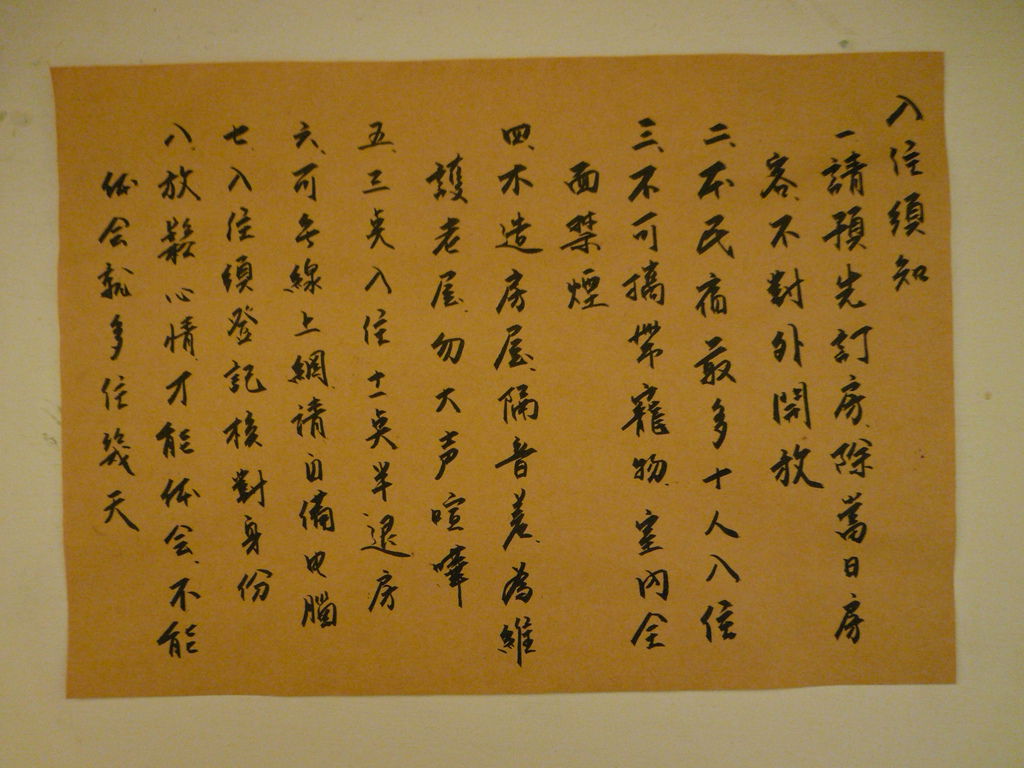 入住須知
一請預先訂房、除當日房
客、不對外開放
二、本民宿最多十人入住
三、不可攜帶寵物、室內全
面禁煙
四、木造房屋、隔音差、為維
護老屋勿大声喧嘩
五、三点入住十一点半退房
六、可無線上網、請自備电腦
七、入住須登記核對身份
八、放鬆心情、才能体会、不能
体会就多住幾天